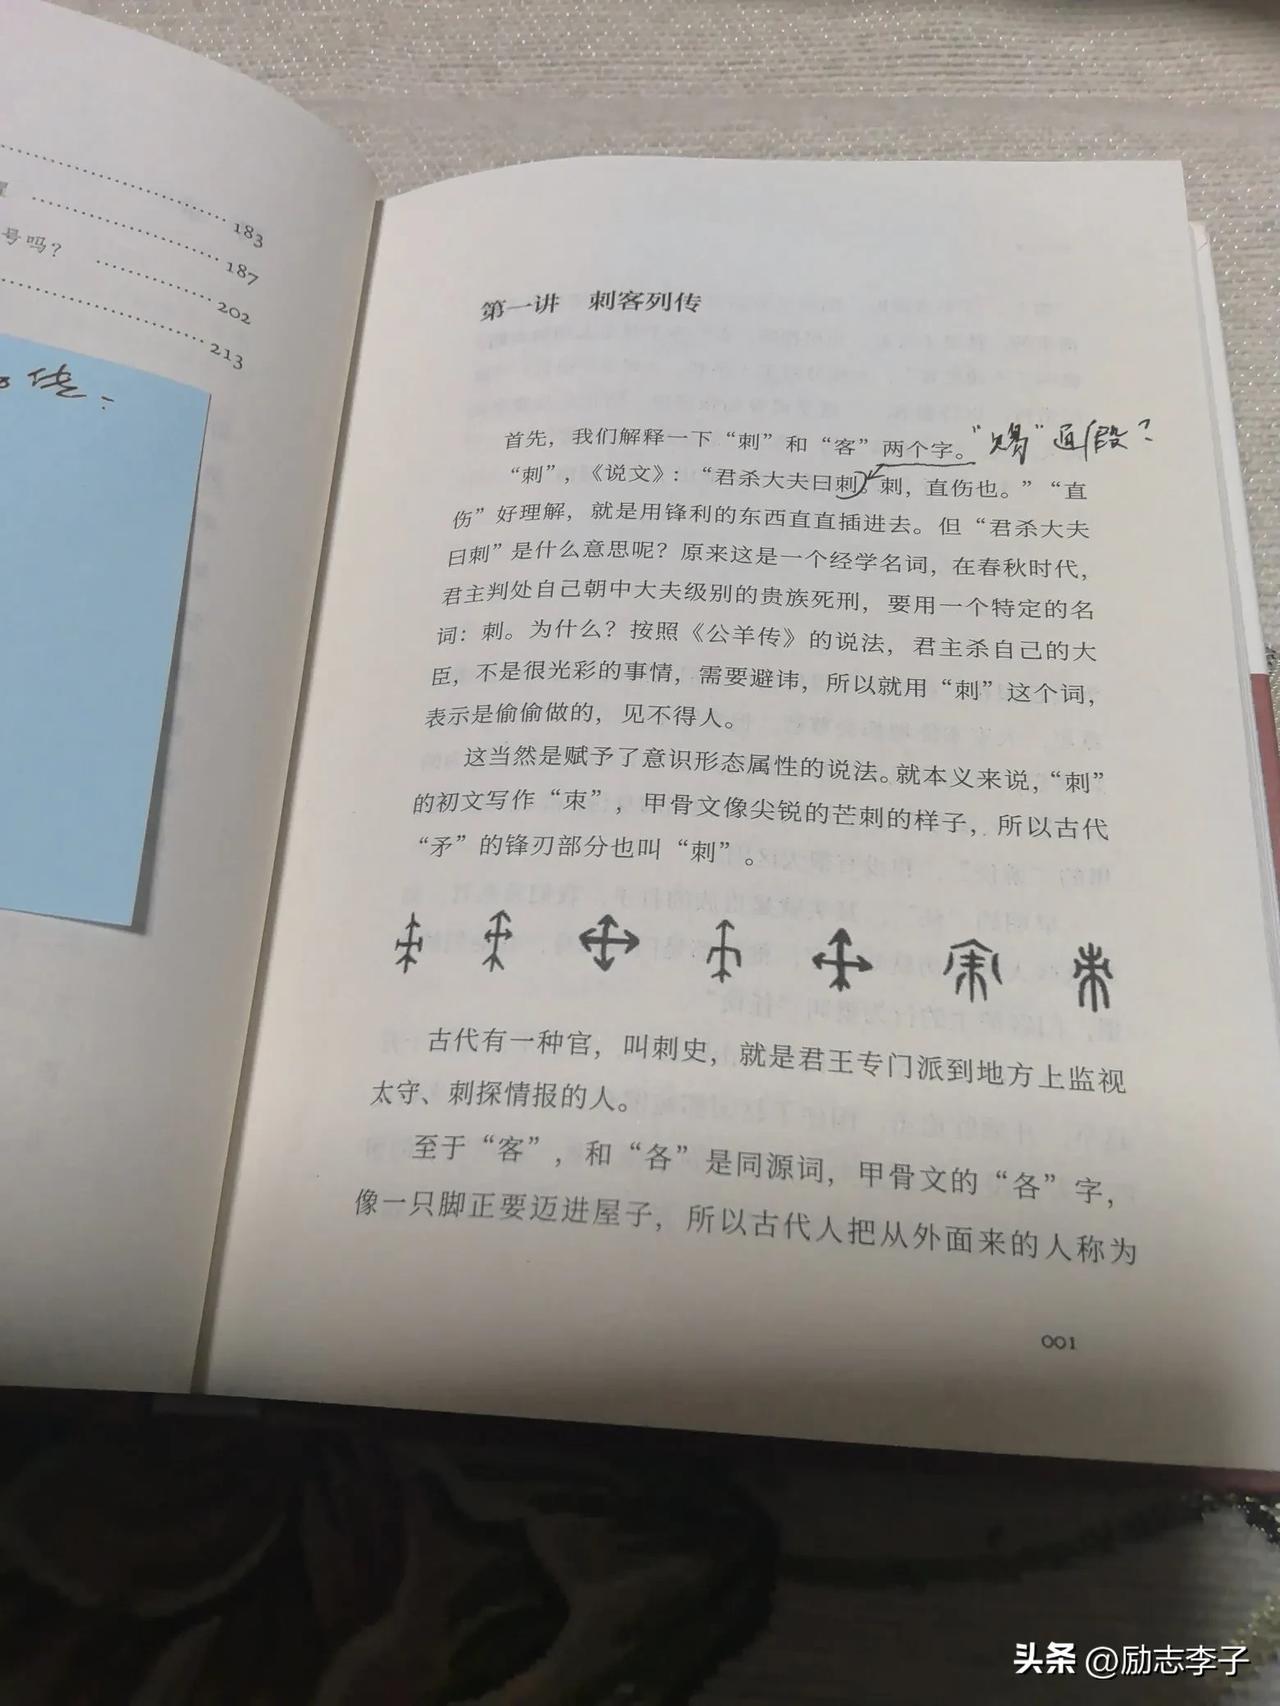 183
187
号吗？
202
213
传：
第一讲 刺客列传
首先，我们解释一下“刺”和“客”两个字。“赐”通假？
“刺”，《说文》：“君杀大夫曰刺。刺，直伤也。”“直
伤”好理解，就是用锋利的东西直直插进去。但“君杀大夫
曰刺”是什么意思呢？原来这是一个经学名词，在春秋时代，
君主判处自己朝中大夫级别的贵族死刑，要用一个特定的名
词：刺。为什么？按照《公羊传》的说法，君主杀自己的大
臣，不是很光彩的事情，需要避讳，所以就用“刺”这个词，
表示是偷偷做的，见不得人。
这当然是赋予了意识形态属性的说法。就本义来说，“刺”
的初文写作“朿”，甲骨文像尖锐的芒刺的样子，所以古代
“矛”的锋刃部分也叫“刺”。
古代有一种官，叫刺史，就是君王专门派到地方上监视
太守、刺探情报的人。
至于“客”，和“各”是同源词，甲骨文的“各”字，
像一只脚正要迈进屋子，所以古代人把从外面来的人称为
001
头条 @励志李子